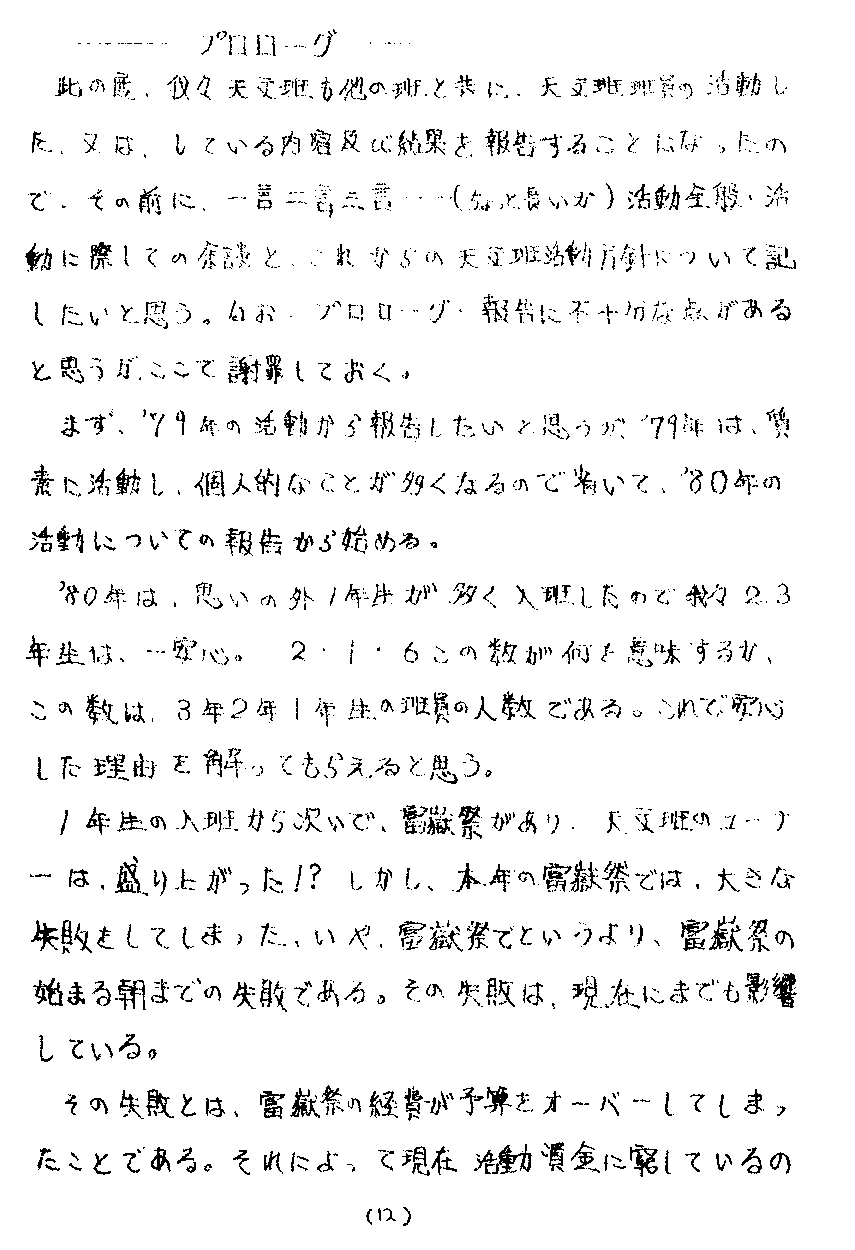 プロローグ
此の度、我々天文班も他の班と共に、天文班班員の活動し
た、又は、している内容及び結果を報告することになったの
で、その前に、一言二言三言…(なんと長いか)活動全般・活
動に際しての余談と、これからの天文班活動方針について記
したいと思う。なお、プロローグ・報告に不十切な点がある
と思うが、ここで謝罪しておく。
まず、'79年の活動から報告したいと思うが、'79年は、質
素に活動し、個人的なことが多くなるので省いて、'80年の
活動についての報告から始める。
'80年は、思いの外1年生が多く入班したので我々2.3
年生は、一安心。2・1・6この数が何を意味するか、
この数は、3年2年1年生の班員の人数である。これで安心
した理由を解ってもらえると思う。
1年生の入班から次いで、富嶽祭があり、天文班のコーナ
ーは、盛り上がった!?しかし、本年の富嶽祭では、大きな
失敗をしてしまった、いや、富嶽祭でというより、富嶽祭の
始まる朝までの失敗である。その失敗は、現在にまでも影響
している。
その失敗とは、富嶽祭の経費が予算をオーバーしてしまっ
たことである。それによって現在活動資金に窮しているの
(12)